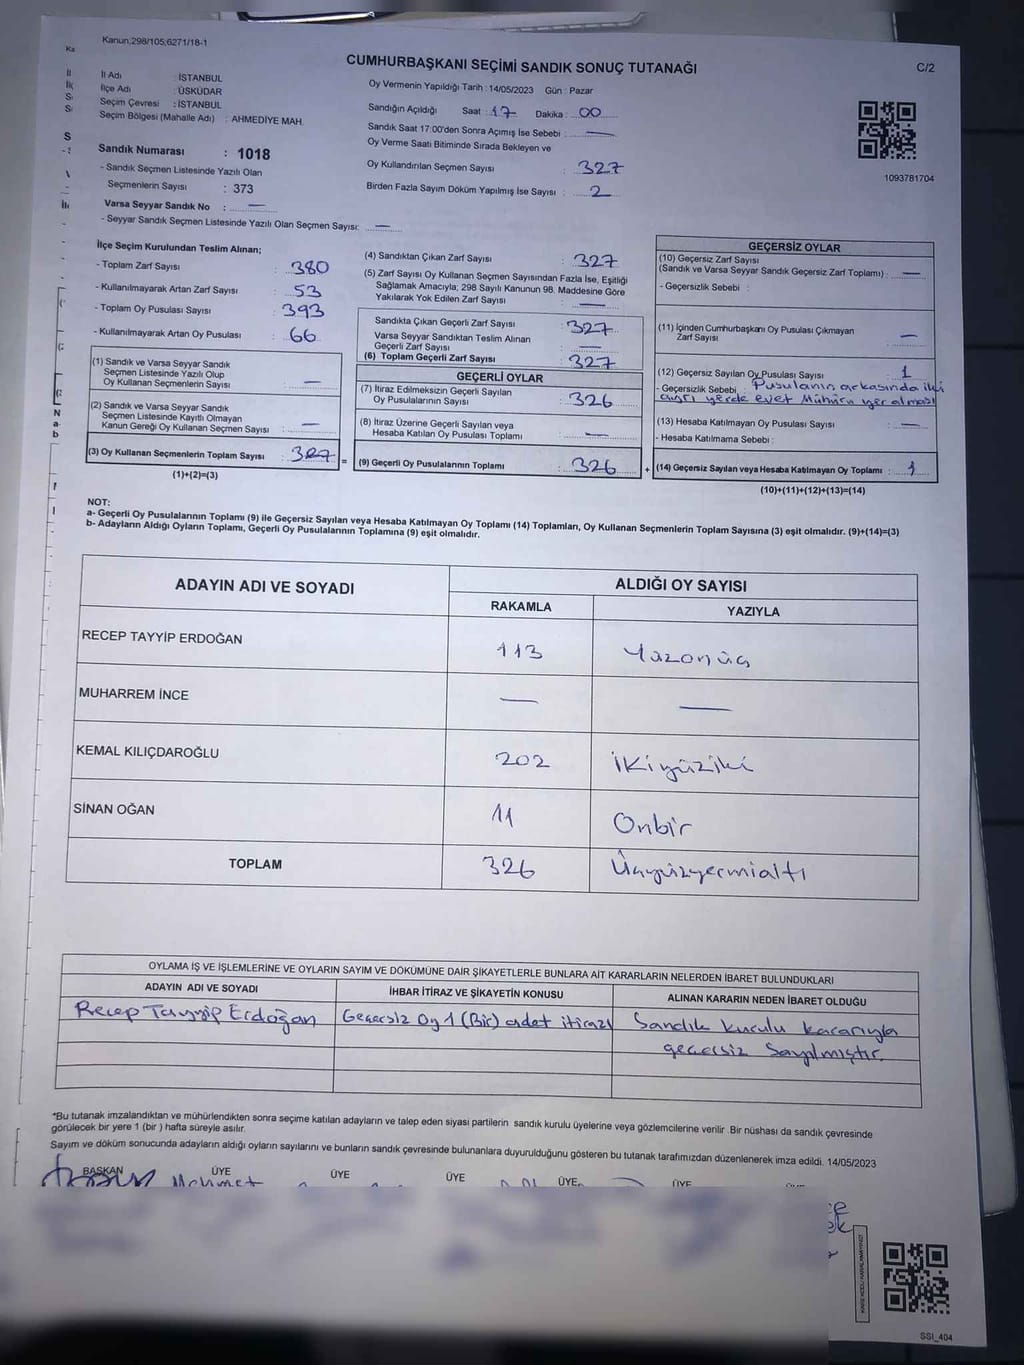 Kanun;298/105;6271/18-1
CUMHURBAŞKANI SEÇİMİ SANDIK SONUÇ TUTANAĞI
C/2
İl Adı : İSTANBUL
İlçe Adı : ÜSKÜDAR
Seçim Çevresi : İSTANBUL
Seçim Bölgesi (Mahalle Adı) : AHMEDİYE MAH.
Sandık Numarası : 1018
- Sandık Seçmen Listesinde Yazılı Olan
Seçmenlerin Sayısı : 373
Varsa Seyyar Sandık No : —
- Seyyar Sandık Seçmen Listesinde Yazılı Olan Seçmen Sayısı: —
Oy Vermenin Yapıldığı Tarih : 14/05/2023 Gün : Pazar
Sandığın Açıldığı Saat : 17 Dakika : 00
Sandık Saat 17:00'den Sonra Açımış İse Sebebi : —
Oy Verme Saati Bitiminde Sırada Bekleyen ve
Oy Kullandırılan Seçmen Sayısı : 327
Birden Fazla Sayım Döküm Yapılmış İse Sayısı : 2
1093781704
İlçe Seçim Kurulundan Teslim Alınan;
- Toplam Zarf Sayısı : 380
- Kullanılmayarak Artan Zarf Sayısı : 53
- Toplam Oy Pusulası Sayısı : 393
- Kullanılmayarak Artan Oy Pusulası : 66
(1) Sandık ve Varsa Seyyar Sandık
Seçmen Listesinde Yazılı Olup
Oy Kullanan Seçmenlerin Sayısı : —
(2) Sandık ve Varsa Seyyar Sandık
Seçmen Listesinde Kayıtlı Olmayan
Kanun Gereği Oy Kullanan Seçmen Sayısı : —
(3) Oy Kullanan Seçmenlerin Toplam Sayısı : 327
(1)+(2)=(3)
(4) Sandıktan Çıkan Zarf Sayısı : 327
(5) Zarf Sayısı Oy Kullanan Seçmen Sayısından Fazla İse, Eşitliği
Sağlamak Amacıyla; 298 Sayılı Kanunun 98. Maddesine Göre
Yakılarak Yok Edilen Zarf Sayısı : —
Sandıkta Çıkan Geçerli Zarf Sayısı : 327
Varsa Seyyar Sandıktan Teslim Alınan
Geçerli Zarf Sayısı : —
(6) Toplam Geçerli Zarf Sayısı : 327
GEÇERLİ OYLAR
(7) İtiraz Edilmeksizin Geçerli Sayılan
Oy Pusulalarının Sayısı : 326
(8) İtiraz Üzerine Geçerli Sayılan veya
Hesaba Katılan Oy Pusulası Toplamı : —
= (9) Geçerli Oy Pusulalarının Toplamı : 326
GEÇERSİZ OYLAR
(10) Geçersiz Zarf Sayısı
(Sandık ve Varsa Seyyar Sandık Geçersiz Zarf Toplamı) : —
- Geçersizlik Sebebi :
(11) İçinden Cumhurbaşkanı Oy Pusulası Çıkmayan
Zarf Sayısı : —
(12) Geçersiz Sayılan Oy Pusulası Sayısı : 1
- Geçersizlik Sebebi : Pusulanın arkasında iki
ayrı yerde evet Mührün yer alması
(13) Hesaba Katılmayan Oy Pusulası Sayısı : —
- Hesaba Katılmama Sebebi :
+ (14) Geçersiz Sayılan veya Hesaba Katılmayan Oy Toplamı : 1
(10)+(11)+(12)+(13)=(14)
NOT:
a- Geçerli Oy Pusulalarının Toplamı (9) ile Geçersiz Sayılan veya Hesaba Katılmayan Oy Toplamı (14) Toplamları, Oy Kullanan Seçmenlerin Toplam Sayısına (3) eşit olmalıdır. (9)+(14)=(3)
b- Adayların Aldığı Oyların Toplamı, Geçerli Oy Pusulalarının Toplamına (9) eşit olmalıdır.
ADAYIN ADI VE SOYADI
ALDIĞI OY SAYISI
RAKAMLA
YAZIYLA
RECEP TAYYİP ERDOĞAN 113 Yüzonüç
MUHARREM İNCE — —
KEMAL KILIÇDAROĞLU 202 İkiyüziki
SİNAN OĞAN 11 Onbir
TOPLAM 326 Üçyüzyermialtı
OYLAMA İŞ VE İŞLEMLERİNE VE OYLARIN SAYIM VE DÖKÜMÜNE DAİR ŞİKAYETLERLE BUNLARA AİT KARARLARIN NELERDEN İBARET BULUNDUKLARI
ADAYIN ADI VE SOYADI
İHBAR İTİRAZ VE ŞİKAYETİN KONUSU
ALINAN KARARIN NEDEN İBARET OLDUĞU
Recep Tayyip Erdoğan Geçersiz Oy 1 (Bir) adet itirazı Sandık kurulu kararıyla
geçersiz Sayılmıştır.
*Bu tutanak imzalandıktan ve mühürlendikten sonra seçime katılan adayların ve talep eden siyasi partilerin sandık kurulu üyelerine veya gözlemcilerine verilir .Bir nüshası da sandık çevresinde
görülecek bir yere 1 (bir ) hafta süreyle asılır.
Sayım ve döküm sonucunda adayların aldığı oyların sayılarını ve bunların sandık çevresinde bulunanlara duyurulduğunu gösteren bu tutanak tarafımızdan düzenlenerek imza edildi. 14/05/2023
BAŞKAN ÜYE ÜYE ÜYE ÜYE ÜYE
Mehmet
SSI_404